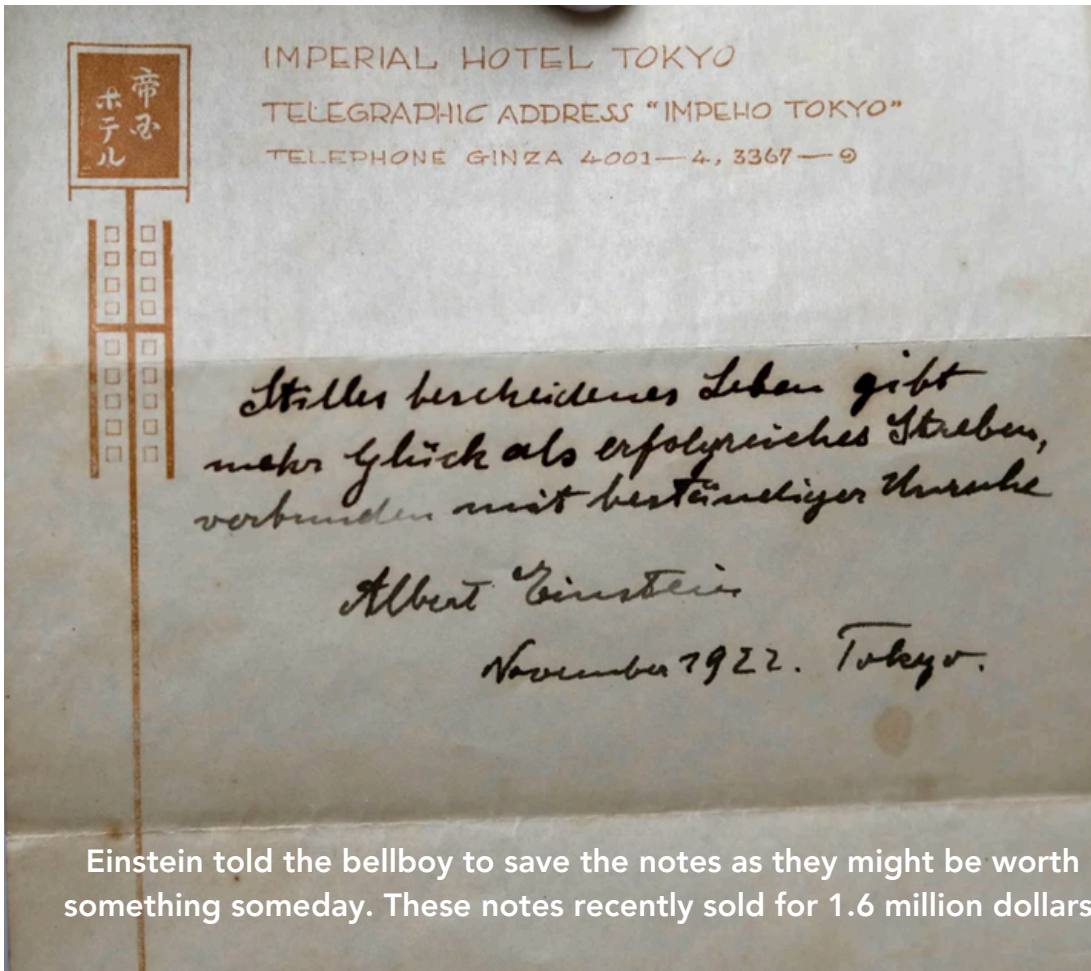 帝国
ホテル
IMPERIAL HOTEL TOKYO
TELEGRAPHIC ADDRESS "IMPEHO TOKYO"
TELEPHONE GINZA 4001—4, 3367—9
Stilles bescheidenes Leben gibt
mehr Glück als erfolgreiches Streben,
verbunden mit beständiger Unruhe
Albert Einstein
November 1922. Tokyo.
Einstein told the bellboy to save the notes as they might be worth
something someday. These notes recently sold for 1.6 million dollars